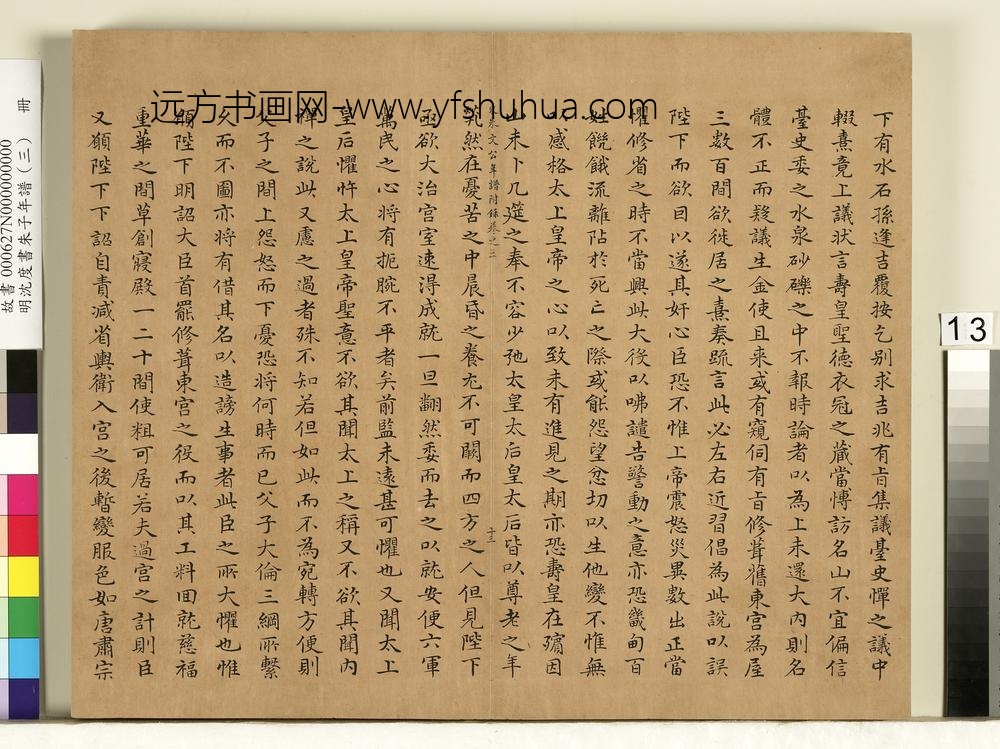 下有水石孫逢吉覆按乞別求吉兆有旨集議臺史憚之議中
輟熹竟上議狀言壽皇聖德衣冠之藏當博訪名山不宜偏信
臺史委之水泉砂礫之中不報時論者以為上未還大內則名
體不正而疑議生金使且来或有窺伺有旨修葺舊東宮為屋
三數百間欲徙居之熹奏䟽言此必左右近習倡為此說以誤
陛下而欲因以遂其奸心臣恐不惟上帝震怒災異數出正當
懼修省之時不當興此大役以咈譴告警動之意亦恐畿甸百
姓饑餓流離阽於死亡之際或能怨望忿切以生他變不惟無
感格太上皇帝之心以致未有進見之期亦恐壽皇在殯因
山未卜几筵之奉不容少弛太皇太后皇太后皆以尊老之年
朱文公年譜附錄卷之二
十三
煢然在憂苦之中晨昏之養尤不可闕而四方之人但見陛下
亟欲大治宮室速得成就一旦翩然委而去之以就安便六軍
萬民之心将有扼腕不平者矣前監未遠甚可懼也又聞太上
皇后懼忤太上皇帝聖意不欲其聞太上之稱又不欲其聞內
禪之說此又慮之過者殊不知若但如此而不為宛轉方便則
父子之間上怨怒而下憂恐将何時而已父子大倫三綱所繫
久而不圖亦将有借其名以造謗生事者此臣之所大懼也惟
願陛下明詔大臣首罷修葺東宮之役而以其工料回就慈福
重華之間草創寢殿一二十間使粗可居若夫過宮之計則臣
又願陛下下詔自責減省輿衛入宮之後暫變服色如唐肅宗
远方书画网-www.yfshuhua.com
故書 000627N000000000
明沈度書朱子年譜（三） 冊
13